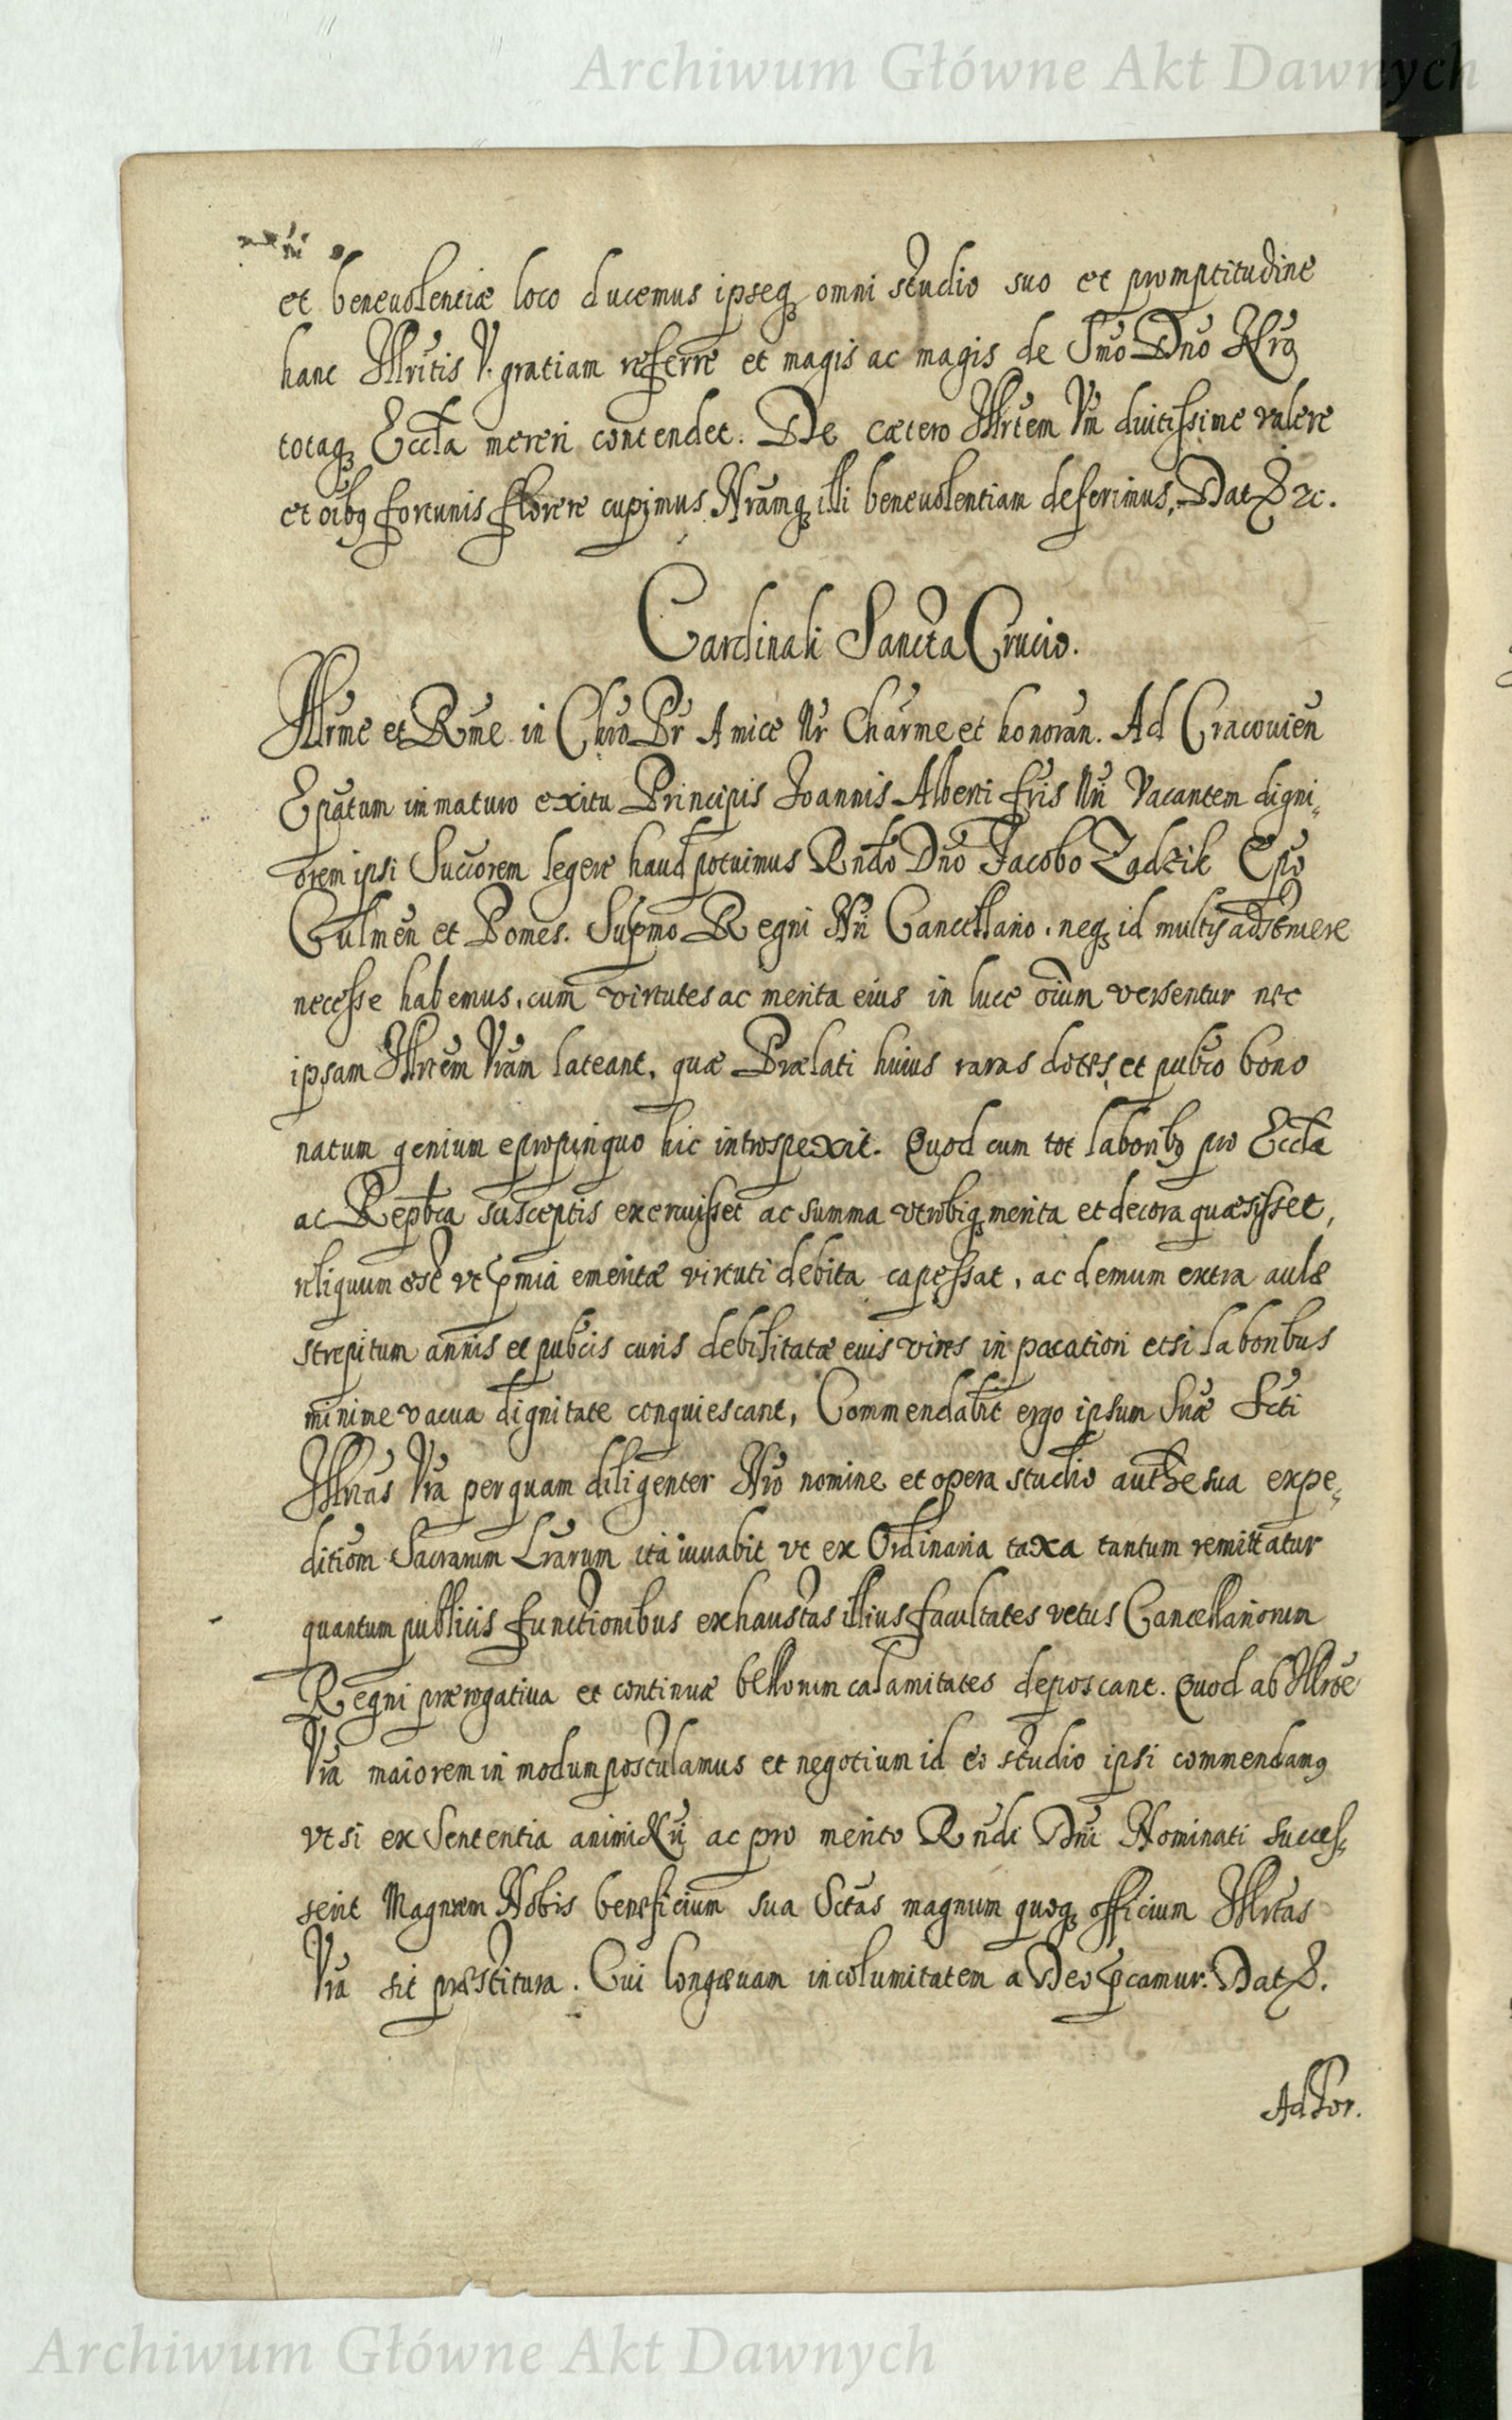 Archiwum Główne Akt Dawnych
et beneuolentiæ loco ducemus ipseq₃ omni studio suo et promptitudine
hanc Illritis V. gratiam referre et magis ac magis de Smo Dno Nro
totaq₃ Eccla mereri contendet. De cætero Illrtem Vm diutissime valere
et oibq fortunis florere cupimus Nramq₃ illi beneuolentiam deferimus, Dat &c.
Cardinali Sancta Crucis.
Illrme et Rme in Chro Pr Amice Nr Charme et honoran. Ad Cracouien
Epatum immaturo exitu Principis Joannis Alberti fris Nri Vacantem digni,,
orem ipsi Succorem legere haud potuimus Rndo Dno Jacobo Zadzik Epo
Culmen et Pomes. Supmo Regni Nri Cancellario, neq₃ id multis adstruere
necesse habemus, cum virtutes ac merita eius in luce oium versentur nec
ipsam Illrtem Vram lateant, quæ Prælati huius raras dotes et pubco bono
natum genium epropinquo hic introspexit. Quod cum tot laboribq pro Eccla
ac Repbca susceptis exercuisset ac summa vtrobiq₃ merita et decora quæsisset,
reliquum est vt pmia emeritæ virtuti debita capessat, ac demum extra aulæ
strepitum annis et pubcis curis debilitatæ euis vires in pacatiori etsi laboribus
minime vacua dignitate conquiescant, Commendabit ergo ipsum Suæ Scti
Illrtas Vra perquam diligenter Nro nomine et opera studio authe sua expe,,
ditiom Sacrarum Lrarum ita iuuabit vt ex Ordinaria taxa tantum remittatur
quantum publicis functionibus exhaustas illius facultates vetus Cancellariorum
Regni prærogatiua et continuæ bellorum calamitates deposcant. Quod ab Illrte
Vra maiorem in modum postulamus et negotium id eo studio ipsi commendamq
vt si ex Sententia animi Nri ac pro merito Rndi Dni Nominati succes,,
serit Magnum Nobis beneficium sua Sctas magnum quoq₃ officium Illrtas
Vra sit præstitura. Cui longæuam incolumitatem a Deo pcamur. Dat &.
Ad
Archiwum Główne Akt Dawnych